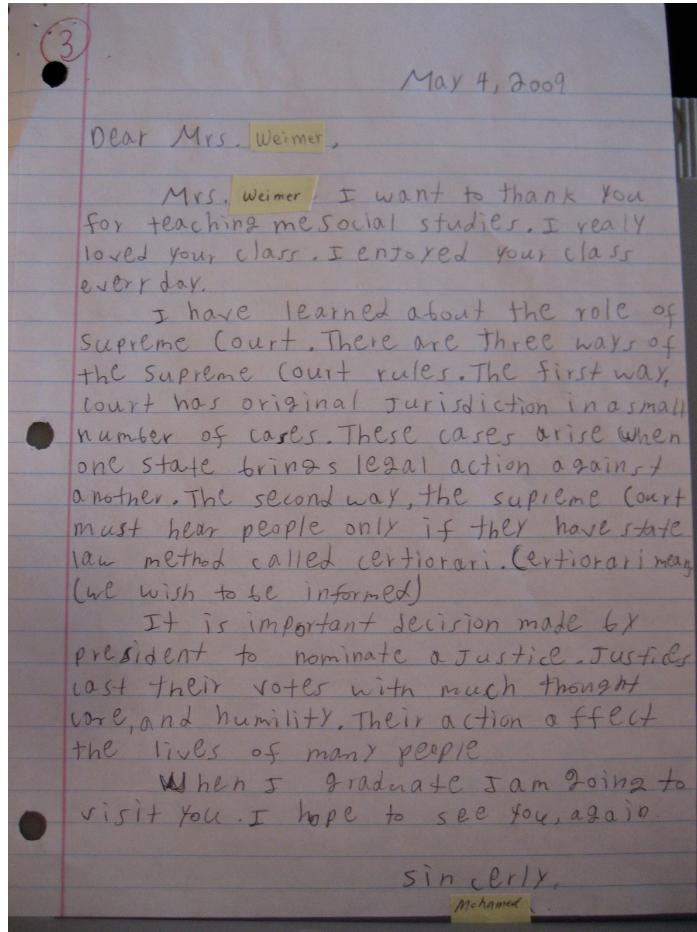 3
May 4, 2009
Dear Mrs. Weimer,
Mrs. Weimer, I want to thank you
for teaching me social studies. I realy
loved your class. I enjoyed your class
every day.
I have learned about the role of
Supreme Court. There are three ways of
the Supreme Court rules. The first way,
court has original Jurisdiction in a small
number of cases. These cases arise when
one state brings legal action against
another. The second way, the supreme Court
must hear people only if they have state
law method called certiorari. Certiorari means
(we wish to be informed)
It is important decision made by
president to nominate a Justice. Justices
cast their votes with much thought
care, and humility. Their action affect
the lives of many people
When I graduate I am going to
visit you. I hope to see you, again.
sincerly,
Mohamed